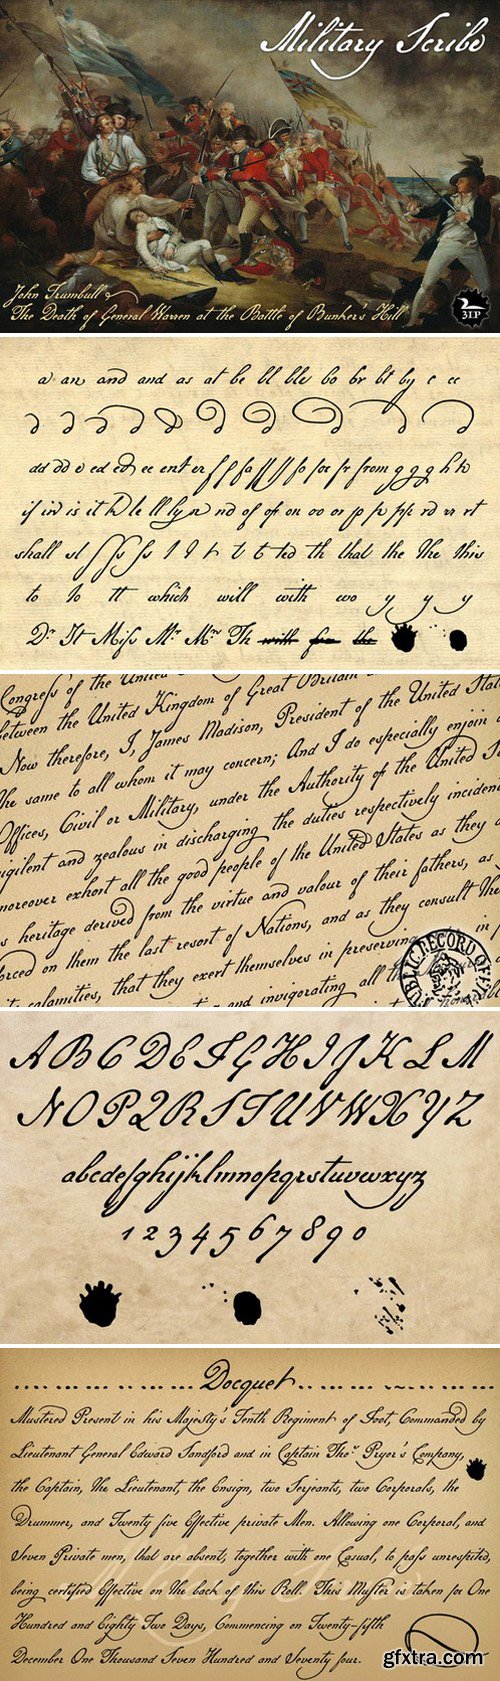 Military Scribe
John Trumbull
The Death of General Warren at the Battle of Bunker's Hill
3IP
a an and and as at be bl ble bo br bt by c cc
dd dd e ed ed ee ent er f f fa ff f fo for fr from g g g h h
if in is it k le ll ly n nd of of on oo or p pp rd rr rt
shall st ss t t t ted th that the the this
to to tt which will with wo y y y
Dr. It Miſs Mr. Mrs. Th with for the
Congreſs of the United
between the United Kingdom of Great Britain
Now therefore, I, James Madison, President of the United Stat
the same to all whom it may concern; And I do especially enjoin
Offices, Civil or Military, under the Authority of the United
vigilent and zealous in discharging the duties respectively inciden
moreover exhort all the good people of the United States as they
s heritage derived from the virtue and valour of their fathers, as
forced on them the last resort of Nations, and as they consult the
calamities, that they exert themselves in preserving
and invigorating all
PUBLIC RECORD OFF
A B C D E F G H I J K L M
N O P Q R S T U V W X Y Z
abcdefghijklmnopqrstuvwxyz
1 2 3 4 5 6 7 8 9 0
Docquet
Mustered Present in his Majesty's Tenth Regiment of Foot, Commanded by
Lieutenant General Edward Sandford and in Captain Thos. Pryor's Company,
the Captain, the Lieutenant, the Ensign, two Serjeants, two Corporals, the
Drummer, and Twenty five Effective private Men. Allowing one Corporal, and
Seven Private men, that are absent, together with one Casual, to paſs unrespited,
being certified Effective on the back of this Roll. This Muster is taken for One
Hundred and Eighty Two Days, Commencing on Twenty-fifth
December One Thousand Seven Hundred and Seventy four.
gfxtra.com